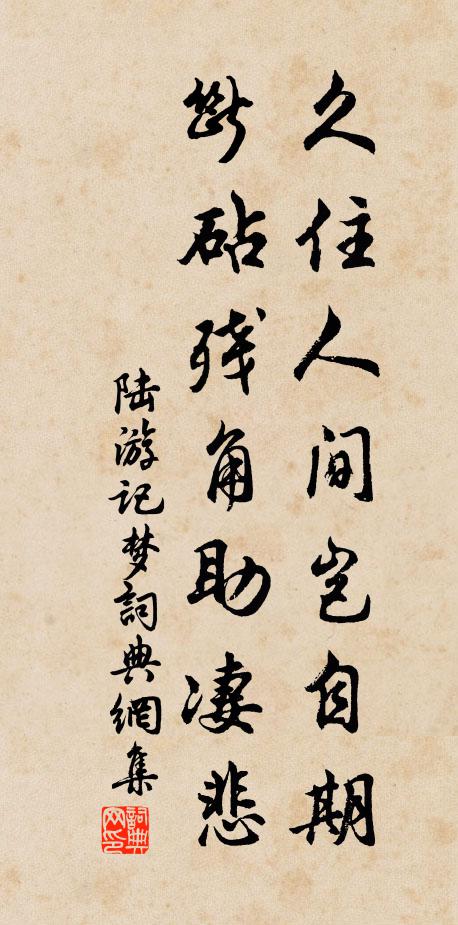 久住人间岂自期
断砧残角助凄悲
陆游记梦詞典網集
詞典网印